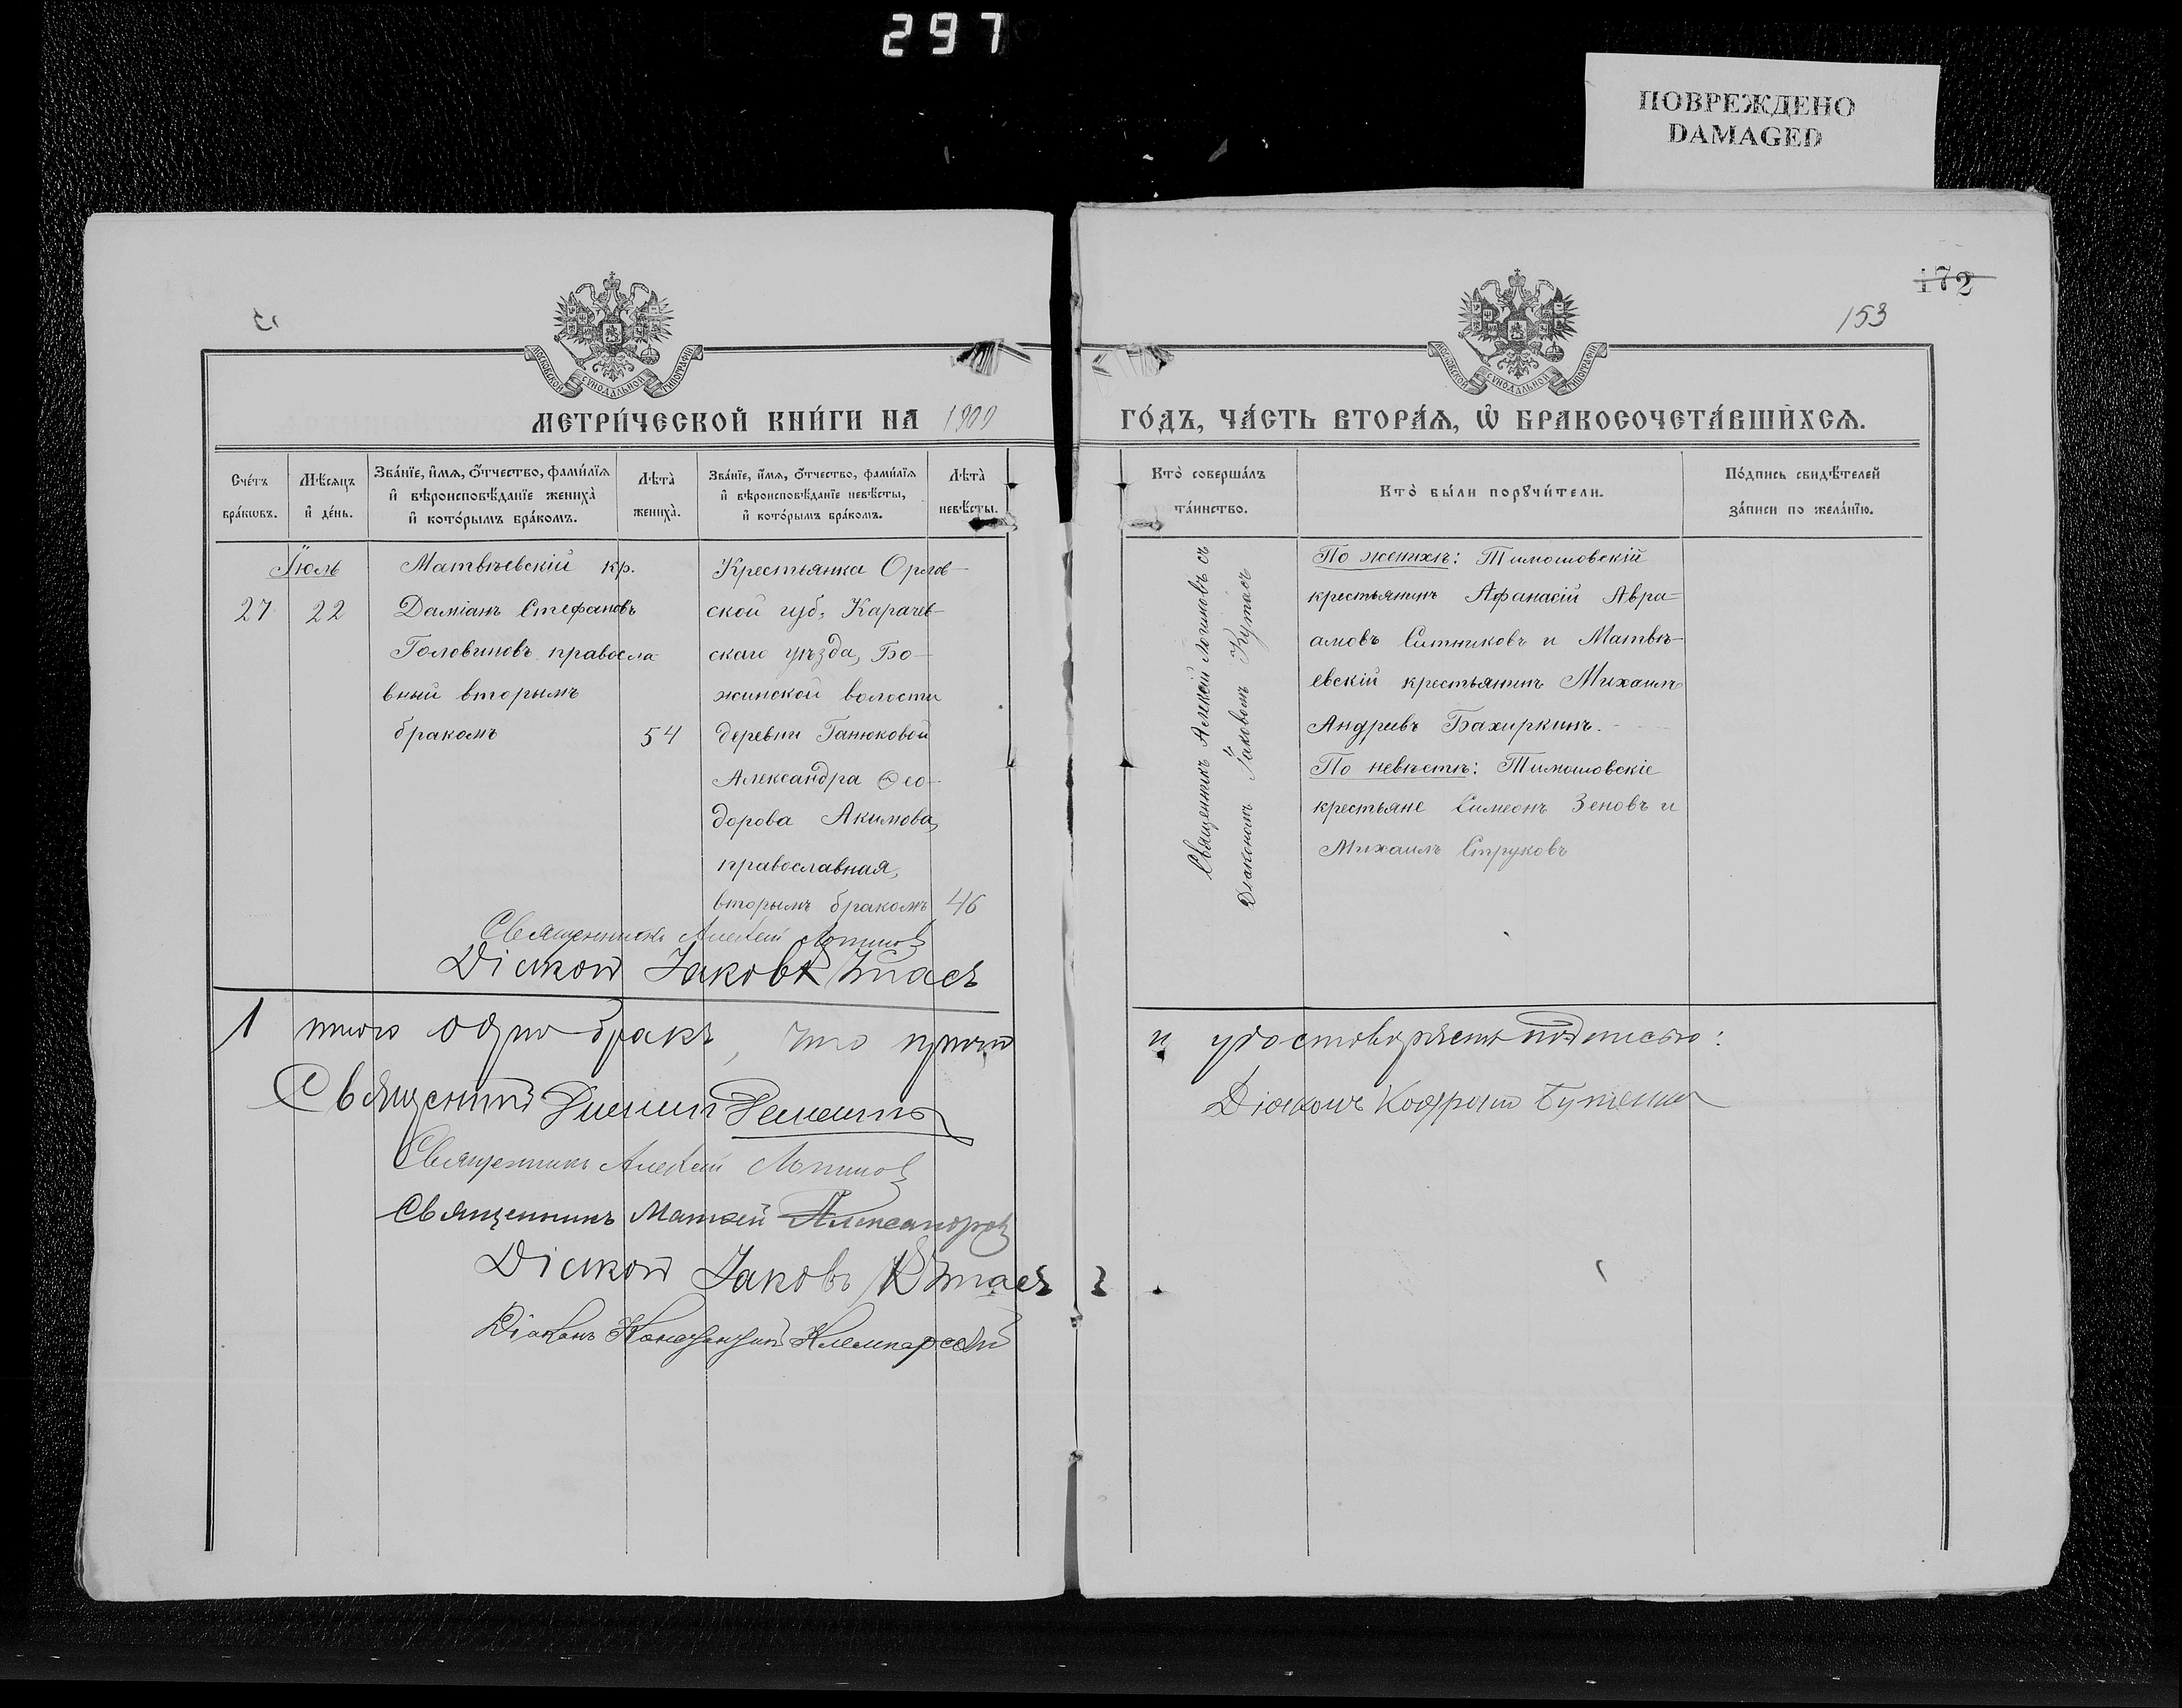 297
ПОВРЕЖДЕНО
DAMAGED
172
153
МОСКОВСКОЙ СѴНОДАЛЬНОЙ ТИПОГРАФІИ
МОСКОВСКОЙ СѴНОДАЛЬНОЙ ТИПОГРАФІИ
МЕТРИ́ЧЕСКОЙ КНИ́ГИ НА 1900
ГО́ДЪ, ЧА́СТЬ ВТОРА́Ѧ, Ѡ БРАКОСОЧЕТА́ВШИХСѦ.
Сче́тъ
бра́кѡвъ.
Мѣ́сяцъ
и де́нь.
Зва́нїе, и́мѧ, ѻ́тчество, фами́лїѧ
и вѣроисповѣ́данїе жениха̀
и кото́рымъ бра́комъ.
Лѣта̀
жениха̀.
Зва́нїе, и́мѧ, ѻ́тчество, фами́лїѧ
и вѣроисповѣ́данїе невѣ́сты,
и кото́рымъ бра́комъ.
Лѣта̀
невѣ́сты.
Кто̀ соверша́лъ
та́инство.
Кто̀ бы́ли порꙋчи́тели.
По́дпись свидѣ́телей
за́писи по жела́нїю.
Іюль
27
22
Матвѣевскій кр.
Даміанъ Стефановъ
Головиновъ правосла
вный вторымъ
бракомъ
54
Крестьянка Орлов-
ской губ. Карачев-
скаго уѣзда, Бо-
жинской волости
деревни Ганюковой
Александра Ѳео-
дорова Акимова,
православная,
вторымъ бракомъ
46
Священникъ Алексій Логиновъ съ
Діакономъ Іаковомъ
По женихѣ: Тимошовскій
крестьянинъ Афанасій Авра-
амовъ Ситниковъ и Матвѣ-
евскій крестьянинъ Михаилъ
Андреевъ Бахиркинъ.
По невѣстѣ: Тимошовскіе
крестьяне Симеонъ Зеновъ и
Михаилъ Струковъ
Священникъ Алексій Логинов
Діакон Іаковъ
1 итого одинъ бракъ, что причт
и удостовѣряетъ подписью:
Священник
Священникъ Алексій Логинов
Священникъ Матѳей Александров
Діакон Іаковъ
Діаконъ
Діаконъ